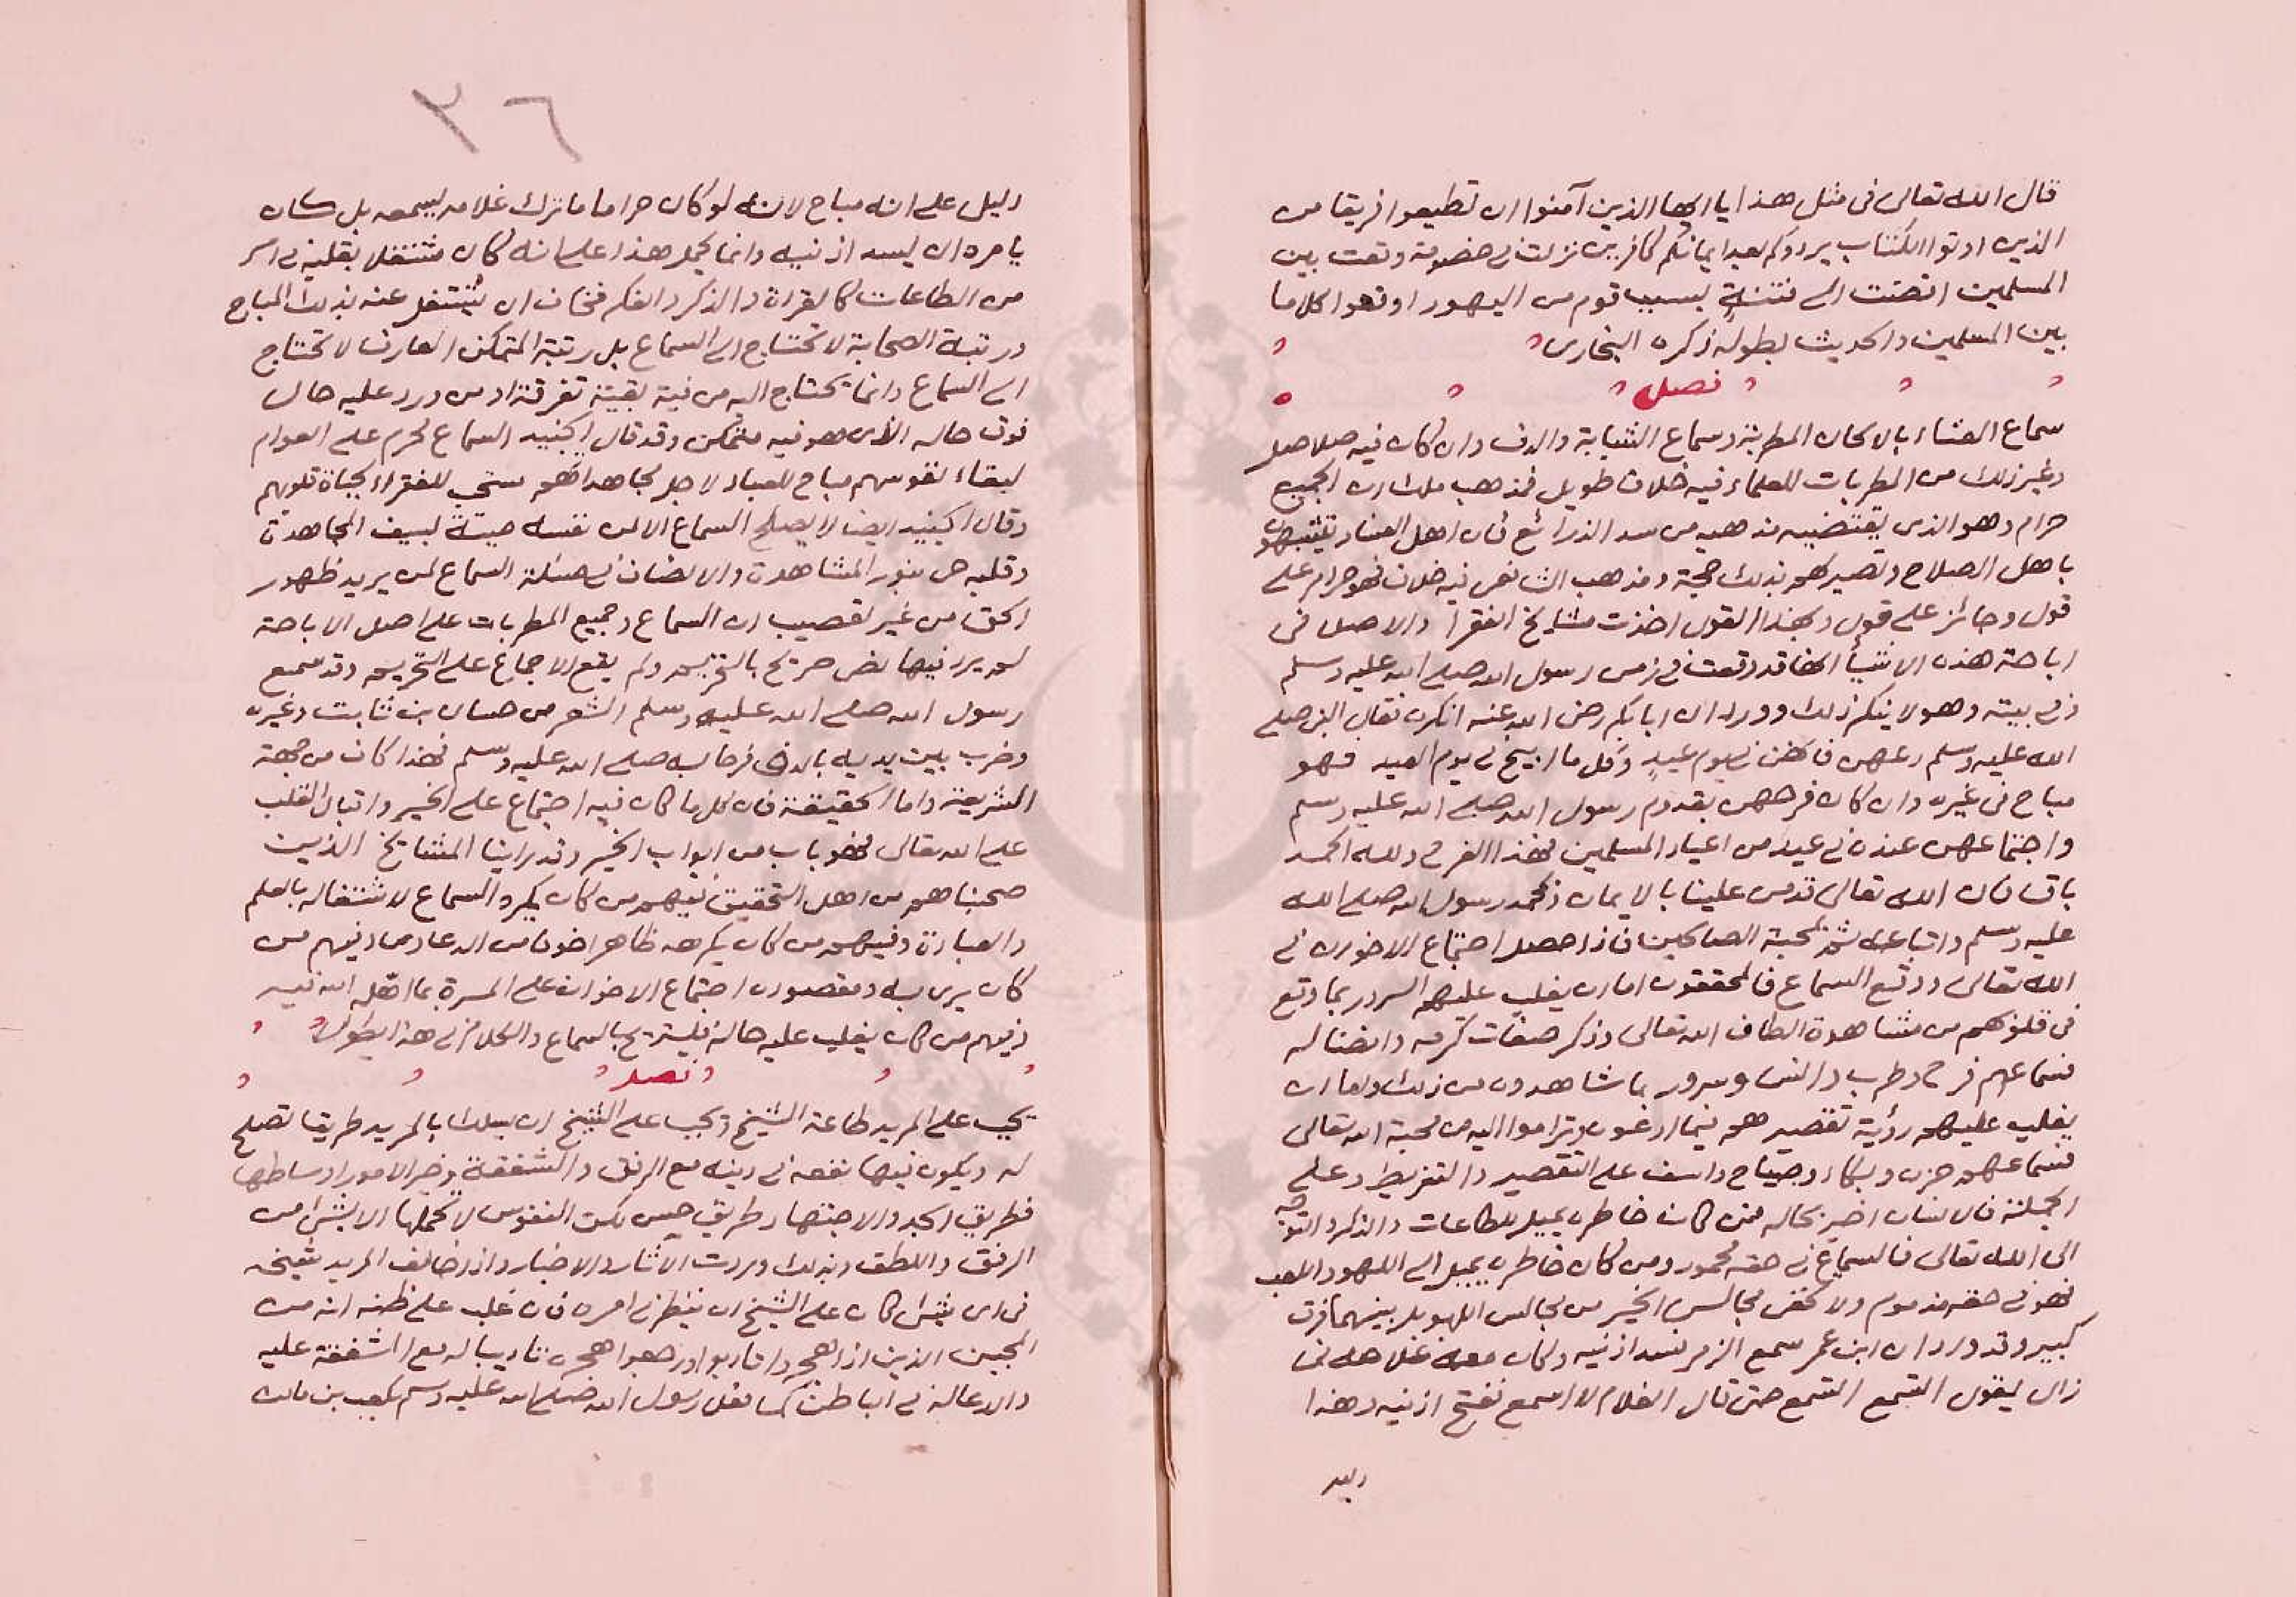 قال الله تعالى فى مثل هذا يا ايها الذين آمنوا ان تطيعوا فريقا من
الذين اوتوا الكتاب يردوكم بعد ايمانكم كافرين نزلت فى خصومة وقعت بين
المسلمين افضت الى فتنة بسبب قوم من اليهود اوقعوا كلاما
بين المسلمين والحديث بطوله ذكره البخارى
فصل
سماع الغناء بالالحان المطربة وسماع الشبابة والدف وان كان فيه صلاصل
وغير ذلك من المطربات للعلماء فيه خلاف طويل فمذهب ملك ان الجميع
حرام وهو الذى يقتضيه مذهبه من سد الذرائع فان اهل الفساد يتشبهون
باهل الصلاح وتصير لهم بذلك حجة ومذهب الشافعى فيه خلاف فهو حرام على
قول وجائز على قول وبهذا القول اخذت مشايخ الفقرا والاصل فى
اباحة هذه الاشيا انها قد وقعت فى زمن رسول الله صلى الله عليه وسلم
وفى بيته وهو لا ينكر ذلك وورد ان ابا بكر رضى الله عنه انكره فقال النبى صلى
الله عليه وسلم دعهن فانهن فى يوم عيد وكل ما ابيح فى يوم العيد فهو
مباح فى غيره وان كان فرحهن بقدوم رسول الله صلى الله عليه وسلم
واجتماعهن عنده فى عيد من اعياد المسلمين فهذا الفرح ولله الحمد
باق فان الله تعالى قد من علينا بالايمان و رسول الله صلى الله
عليه وسلم واتباعه ثم محبة الصالحين فاذا حصل اجتماع الاخوان فى
الله تعالى ووقع السماع فالمحققون اما ان يغلب عليهم السرور بما وقع
فى قلوبهم من مشاهدة الطاف الله تعالى وذكر صفات كرمه وافضاله
فسماعهم فرح وطرب وانس وسرور بما شاهدون من ذلك واما ان
يغلب عليهم رؤية تقصيرهم فيما ادعوه وتراموا اليه من محبة الله تعالى
فسماعهم حزن وبكاء وصياح واسف على التقصير والتفريط وعلى
الجملة فالانسان اخبر بحاله فمن كان خاطره يميل للطاعات والذكر والتوجه
الى الله تعالى فالسماع فى حقه محمود ومن كان خاطره يميل الى اللهو واللعب
فهو فى حقه مذموم ولا تخفى مجالس الخير من مجالس اللهو بل بينهما فرق
كبير وقد ورد ان ابن عمر سمع الزمر فسد اذنيه وكان معه غلامه فما
زال يقول اتسمع اتسمع حتى قال الغلام لا اسمع ففتح اذنيه وهذا
٣٦
دليل على انه مباح لانه لو كان حراما ما ترك غلامه ليسمعه بل كان
يامره ان يسد اذنيه وانما يحمل هذا على انه كان مشتغلا بقلبه فى امر
من الطاعات كالقراة والذكر والفكر فخاف ان يشتغل عنه بذلك المباح
ورتبة الصحابة لا تحتاج الى السماع بل رتبة المتمكن العارف لا تحتاج
الى السماع وانما يحتاج اليه من فيه بقية تفرقة او من ورد عليه حال
فوق حاله الذى هو فيه متمكن وقد قال الجنيد السماع محرم على العوام
لبقاء نفوسهم مباح للعباد لاجل مجاهداتهم مستحب للفقراء لحياة قلوبهم
وقال الجنيد ايضا لا يصلح السماع الا لمن نفسه ميتة بسيف المجاهدة
وقلبه حى بنور المشاهدة والانصاف فى مسئلة السماع لمن يريد ظهور
الحق من غير تعصيب ان السماع وجميع المطربات على اصل الاباحة
لم يرد فيها نص صريح بالتحريم ولم يقع الاجماع على التحريم وقد سمع
رسول الله صلى الله عليه وسلم الشعر من حسان بن ثابت وغيره
وضرب بين يديه بالدف فرحا به صلى الله عليه وسلم فهذا كان من جهة
الشريعة واما الحقيقة فان كل ما كان فيه اجتماع على الخير واقبال القلب
على الله تعالى فهو باب من ابواب الخير وقد راينا المشايخ الذين
صحبناهم من اهل التحقيق فيهم من كان يكره السماع لاشتغاله بالعلم
والعبادة وفيهم من كان يكرهه ظاهرا خوفا من الدعاوى وفيهم من
كان يرى به ومقصوده اجتماع الاخوان على المسرة بما اهله الله فيه
وفيهم من كان يغلب عليه حاله فيستريح بالسماع والكلام فى هذا يطول
فصل
يجب على المريد طاعة الشيخ ويجب على الشيخ ان يسلك بالمريد طريقا تصلح
له ويكون فيها نفعه فى دينه مع الرفق والشفقة وخير الامور اوساطها
فطريق الجد والاجتهاد طريق حسن لكن النفوس لا تحملها الا بشئ من
الرفق واللطف وبذلك وردت الآثار والاخبار واذا خالف المريد شيخه
فى اى شئ كان على الشيخ ان ينظر فى امره فان غلب على ظنه انه من
المحبين الذين اذا هجروا تابوا ورجعوا هجره تاديبا له مع الشفقة عليه
والدعا له فى الباطن كما فعل رسول الله صلى الله عليه وسلم بكعب بن مالك